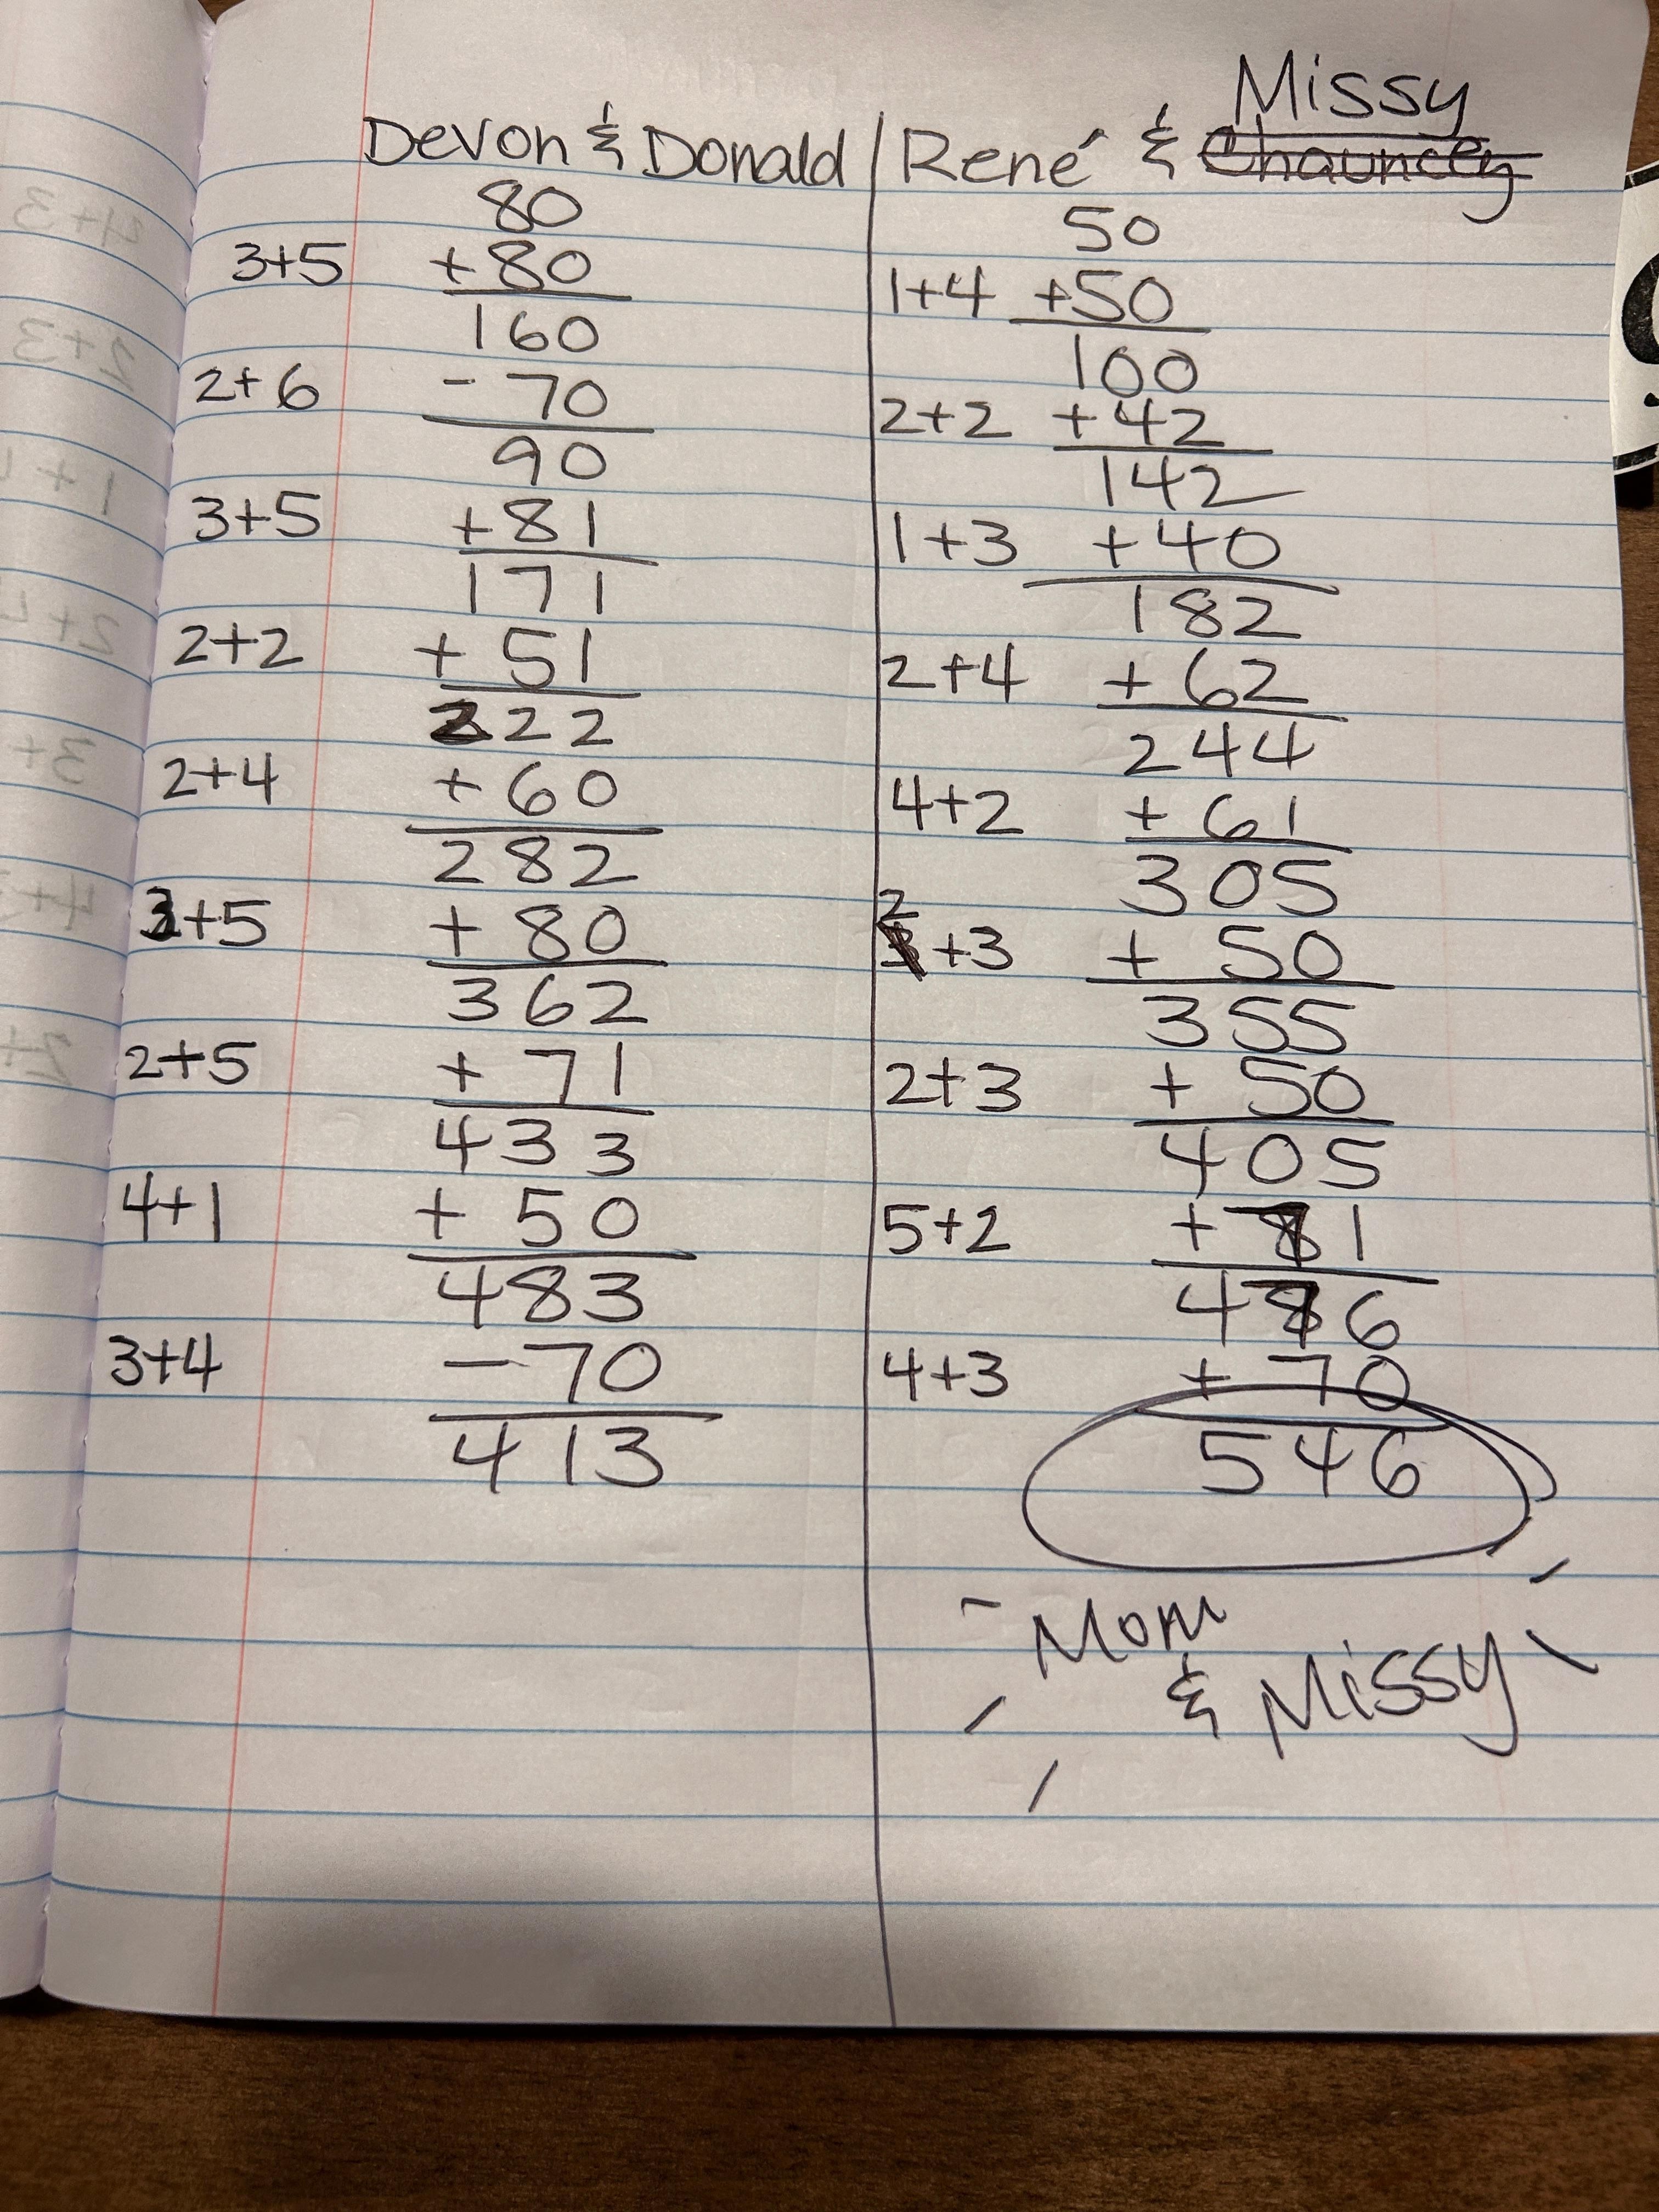 Missy
Devon & Donald
80
3+5 +80
160
2+6 - 70
90
3+5 +81
171
2+2 + 51
222
2+4 + 60
282
3+5 + 80
362
2+5 + 71
433
4+1 + 50
483
3+4 - 70
413
René & Chauncey
50
1+4 +50
100
2+2 +42
142
1+3 +40
182
2+4 + 62
244
4+2 + 61
305
2+3 + 50
355
2+3 + 50
405
5+2 + 71
476
4+3 + 70
546
Mom
& Missy